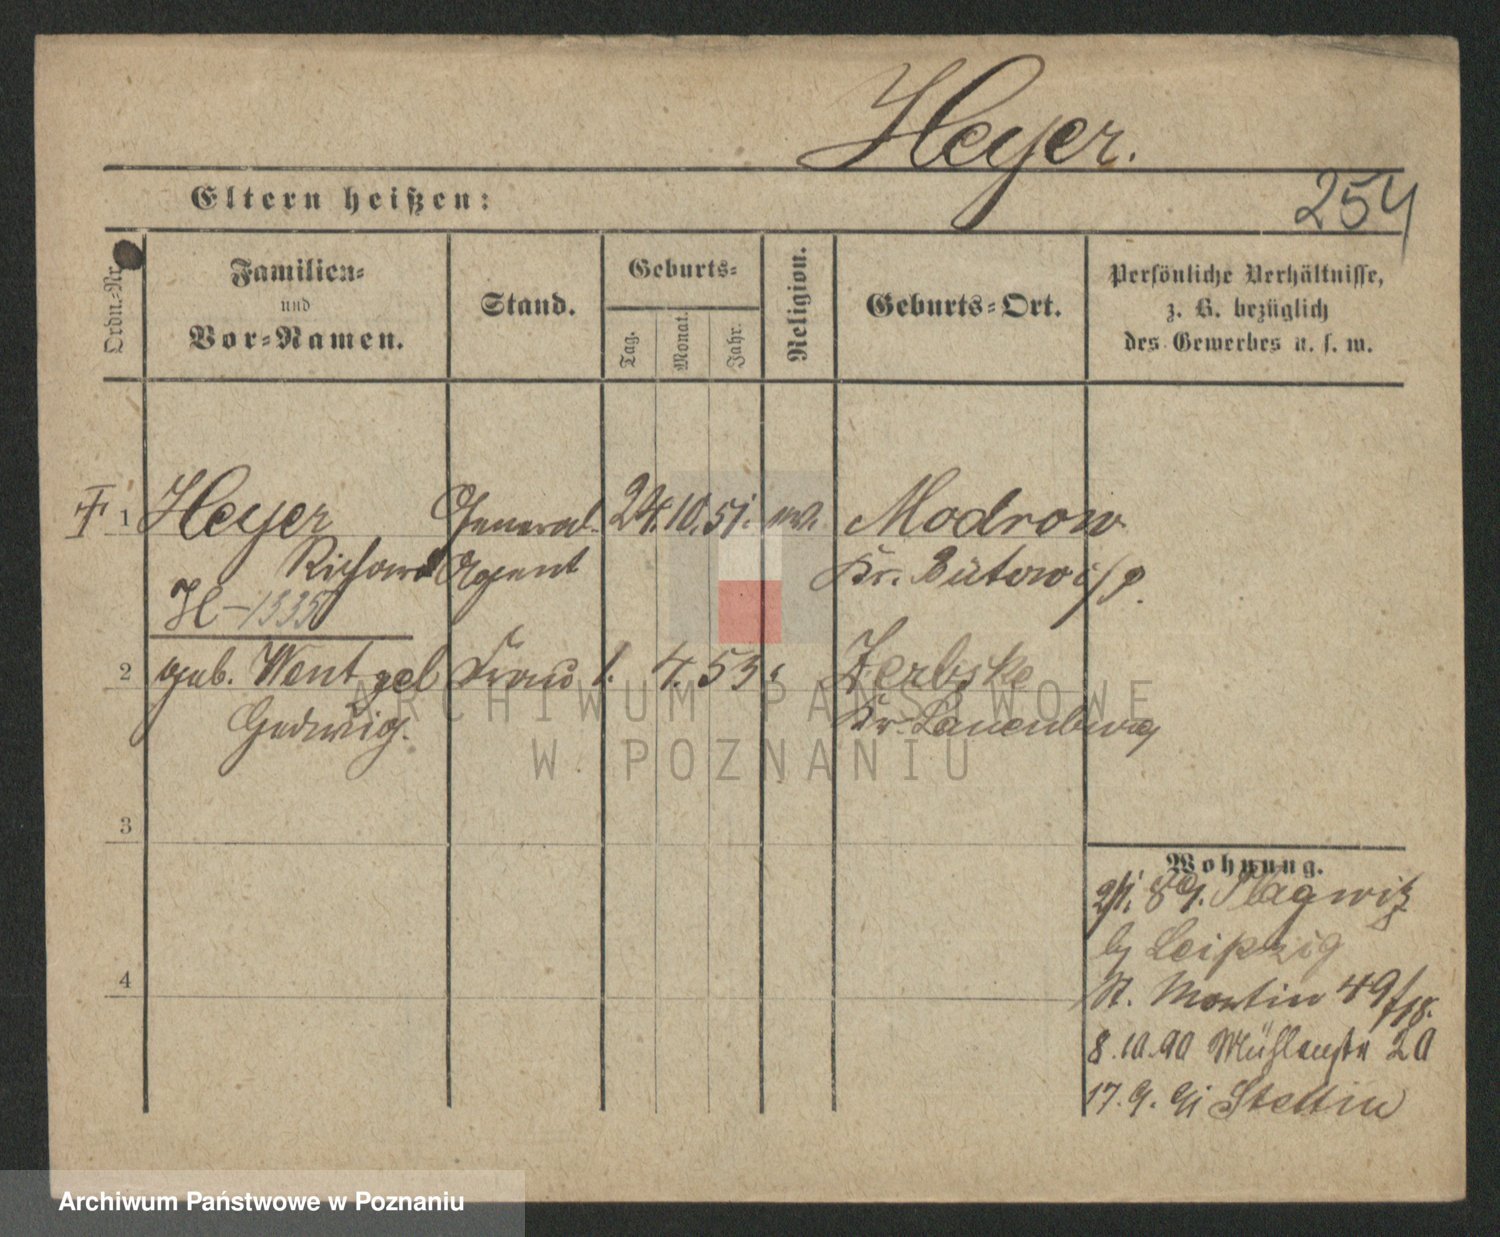 Heyer.
Eltern heißen:
254
Ordn.-Nr.
Familien-
und
Vor-Namen.
Stand.
Geburts-
Tag.
Monat.
Jahr.
Religion.
Geburts-Ort.
Persönliche Verhältnisse,
z. B. bezüglich
des Gewerbes u. s. w.
1 Heyer General- 24. 10. 51. ev. Modrow
Richard Agent Kr. Bütow i/P.
H-1335
2 geb. Wentzel Frau 1. 4. 53. Zerbske
Hedwig. Kr. Lauenburg
3
4
Wohnung.
2/1. 89. Plagwitz
b/ Leipzig
St. Martin 49/
8.10.90 Mühlenstr 20
17.9.91 Stettin
ARCHIWUM PAŃSTWOWE
W POZNANIU
Archiwum Państwowe w Poznaniu